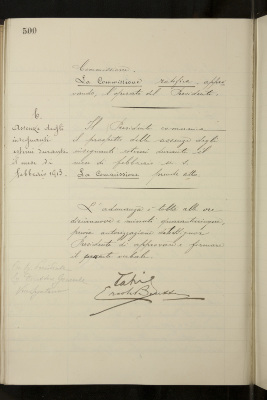 500
Commissione.
La Commissione ratifica, appro
vando, l'operato del Presidente.
6.
Assenze degli
insegnanti
esterni durante
il mese di
febbraio 1913.
Il Presidente comunica
il prospetto delle assenze degli
insegnanti esterni durante il
mese di febbraio u. s.
La Commissione prende atto.
L'adunanza è tolta alle ore
diciannove e minuti quarantacinque,
previa autorizzazione
Presidente di approvare e firmare
il presente verbale.